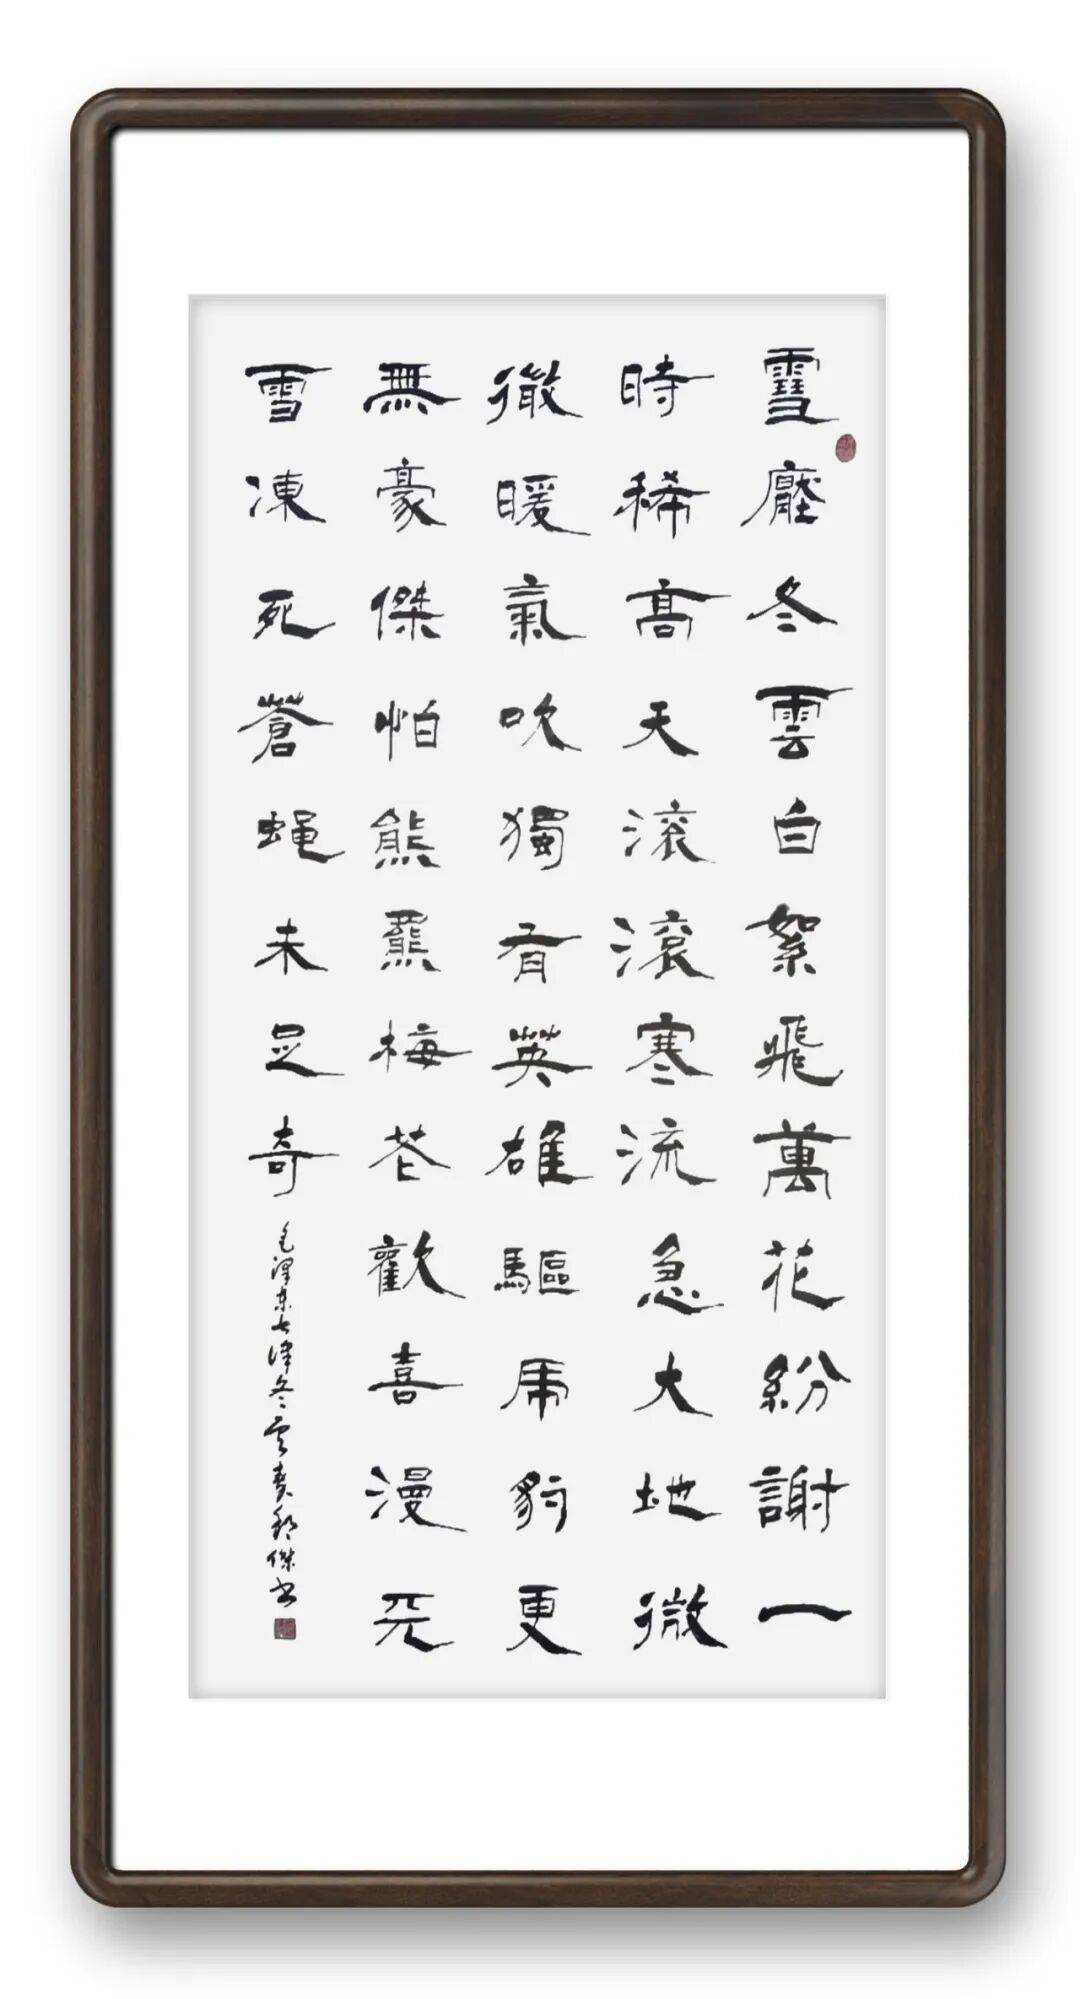 雪壓冬雲白絮飛萬花紛謝一
時稀高天滚滚寒流急大地微
微暖氣吹獨有英雄驅虎豹更
無豪傑怕熊羆梅花歡喜漫天
雪凍死蒼蝇未足奇
毛澤东七律冬雲傑书